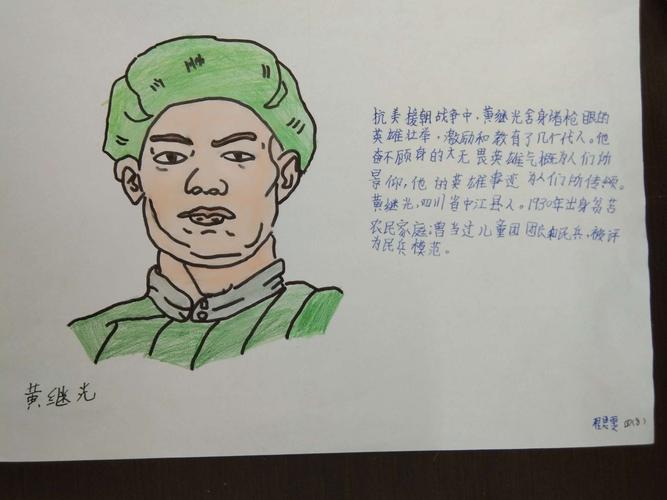 抗美援朝战争中，黄继光舍身堵枪眼的
英雄壮举，激励和教育了几个代人。他
奋不顾身的大无畏英雄气概为人们所
景仰，他的英雄事迹为人们所传颂。
黄继光，四川省中江县人。1930年出身贫苦
农民家庭；曾当过儿童团团长和民兵，被评
为民兵模范。
黄继光
四(8)